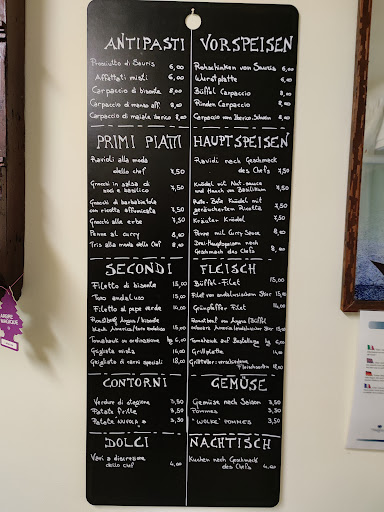 ANTIPASTI
Prosciutto di Sauris 6,00
Affettati misti 6,00
Carpaccio di bisonte 8,00
Carpaccio di manzo aff. 8,00
Carpaccio di maiale iberico 8,00
PRIMI PIATTI
Ravioli alla moda
dello chef 7,50
Gnocchi in salsa di
noci e basilico 7,50
Gnocchi di barbabietola
con ricotta affumicata 7,50
Gnocchi alle erbe 7,50
Penne al curry 8,00
Tris alla moda dello chef 8,00
SECONDI
Filetto di bisonte 15,00
Toro andaluso 15,00
Filetto al pepe verde 14,00
black America/toro andaluso 15,00
Tomahawk su ordinazione kg 6,00
Grigliata mista 14,00
Grigliata di carni speciali 18,00
CONTORNI
Verdure di stagione 3,50
Patate fritte 3,50
Patate "NUVOLA" 3,50
DOLCI
Vari a discrezione
dello chef 4,00
VORSPEISEN
Rohschinken von Sauris 6,00
Wurstplatte 6,00
Büffel Carpaccio 8,00
Rinder Carpaccio 8,00
Carpaccio von Iberico-Schwein 8,00
HAUPTSPEISEN
Ravioli nach Geschmack
des Chefs 7,50
Knödel mit Nut-sauce
und Hauch von Basilikum 7,50
Rote-Bete Knödel mit
geräuchertem Ricotta 7,50
Kräuter Knödel 7,50
Penne mit Curry Sauce 8,00
Drei-Hauptspeisen nach
Geschmack des Chefs 8,00
FLEISCH
Büffel-Filet 15,00
Filet von andalusischem Stier 15,00
Grünpfeffer Filet 14,00
Tomahawk auf Bestellung kg 6,00
Grillplatte 14,00
Grillteller verschiedene
Fleischsorten 18,00
GEMÜSE
Gemüse nach Saison 3,50
Pommes 3,50
"WOLKE" POMMES 3,50
NACHTISCH
Kuchen nach Geschmack
des Chefs 4,00